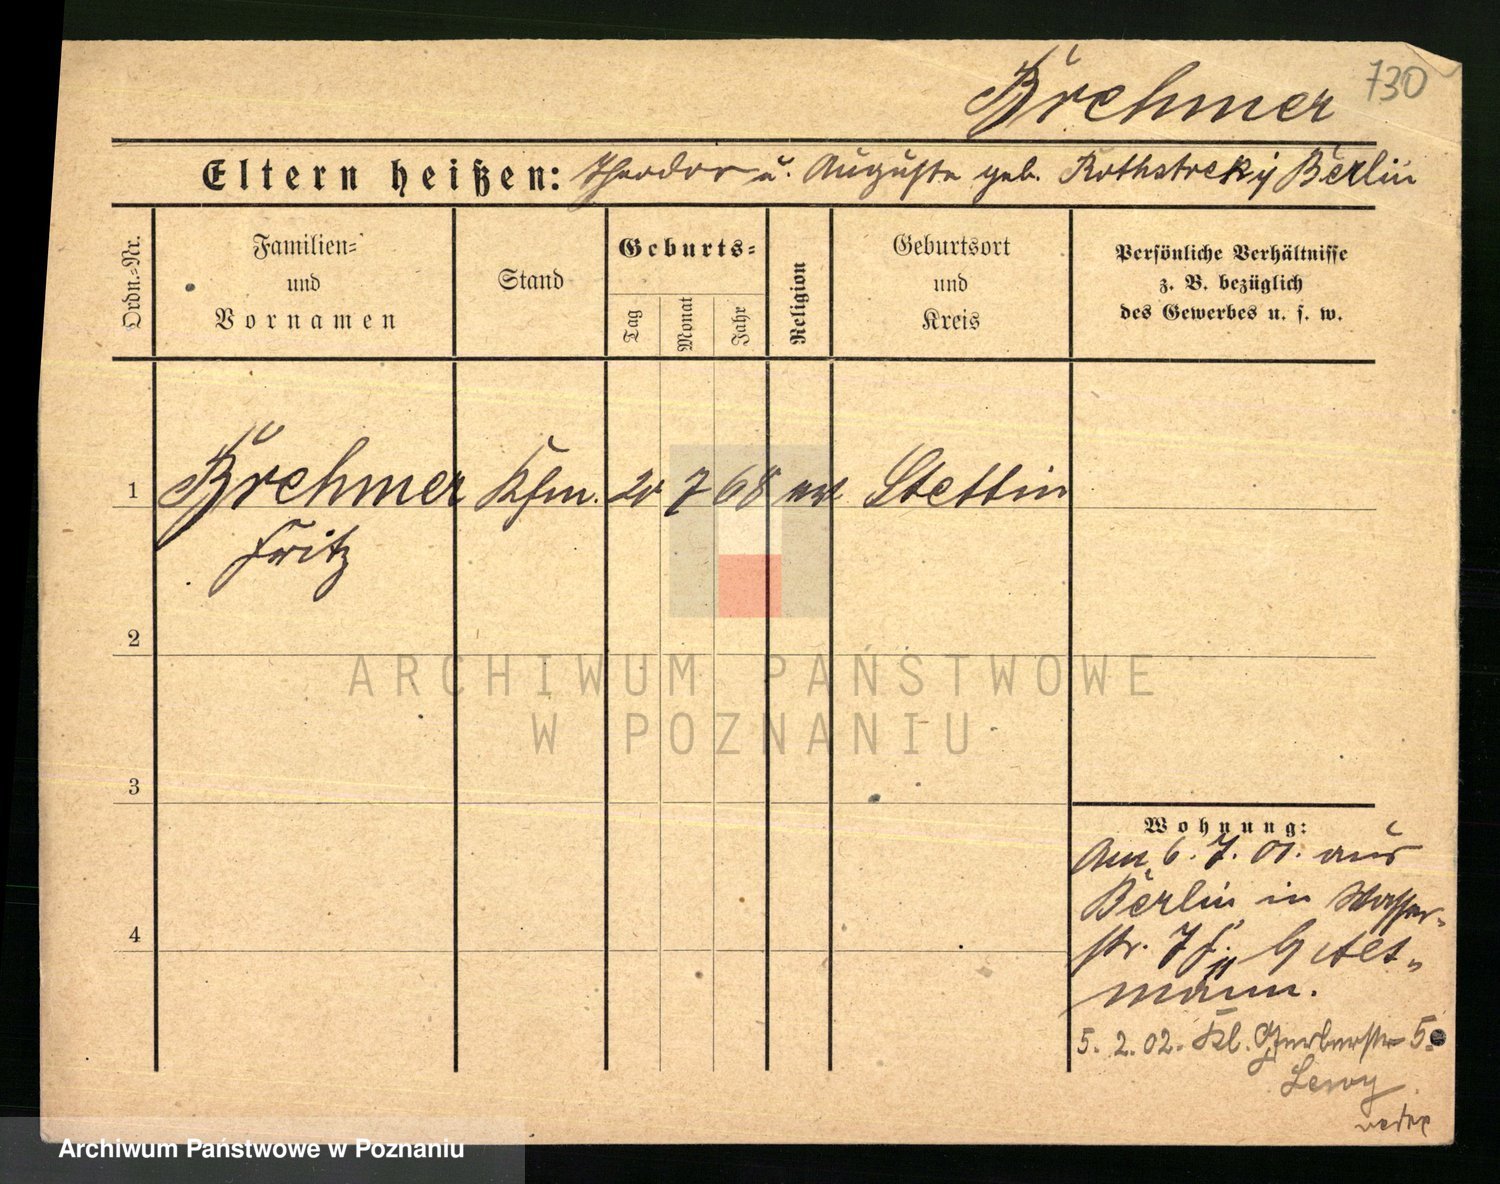 730
Brehmer
Eltern heißen: Theodor u. Auguste geb. Rothstreky Berlin
Ordn.-Nr.
Familien- und Vornamen
Stand
Geburts-
Tag
Monat
Jahr
Religion
Geburtsort und Kreis
Persönliche Verhältnisse z. B. bezüglich des Gewerbes u. s. w.
1 Brehmer Kfm. 20 7 68 Stettin
Fritz
2
ARCHIWUM PAŃSTWOWE
W POZNANIU
3
Wohnung:
Am 6. 7. 01. aus
Berlin in Wasser-
str. 7
4
männ.
5. 2. 02. Kl. Gerberstr 5
Lewy
Archiwum Państwowe w Poznaniu